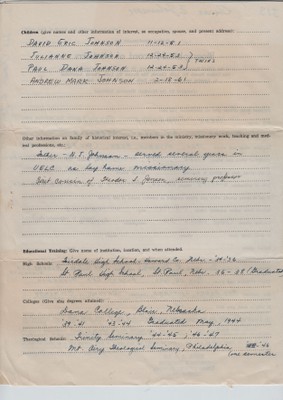 Children (give names and other information of interest, as occupation, spouse, and present address):
DAVID ERIC JOHNSON 11-12-51
JULIANNE JOHNSON 12-24-53
TWINS
PAUL DANA JOHNSON 12-24-53
ANDREW MARK JOHNSON 2-12-61
Other information on family of historical interest, i.e., members in the ministry, missionary work, teaching and medical professions, etc.:
Father - N.T. Johnson - served several years in
UELC as lay home missionary
First cousin of Theodor I. Jensen, seminary professor
Educational Training: Give name of institution, location, and when attended
High Schools: High School - Howard Co. Nebr - '34-'36
St. Paul High School, St. Paul, Nebr. 36-38 (Graduated)
Colleges (Give also degrees attained):
Dana College, Blair, Nebraska
'39-41 '43-44 Graduated May, 1944
Theological Schools: Trinity Seminary '44-'45; '46-'47
Mt. Airy Theological Seminary, Philadelphia '46
(one semester)